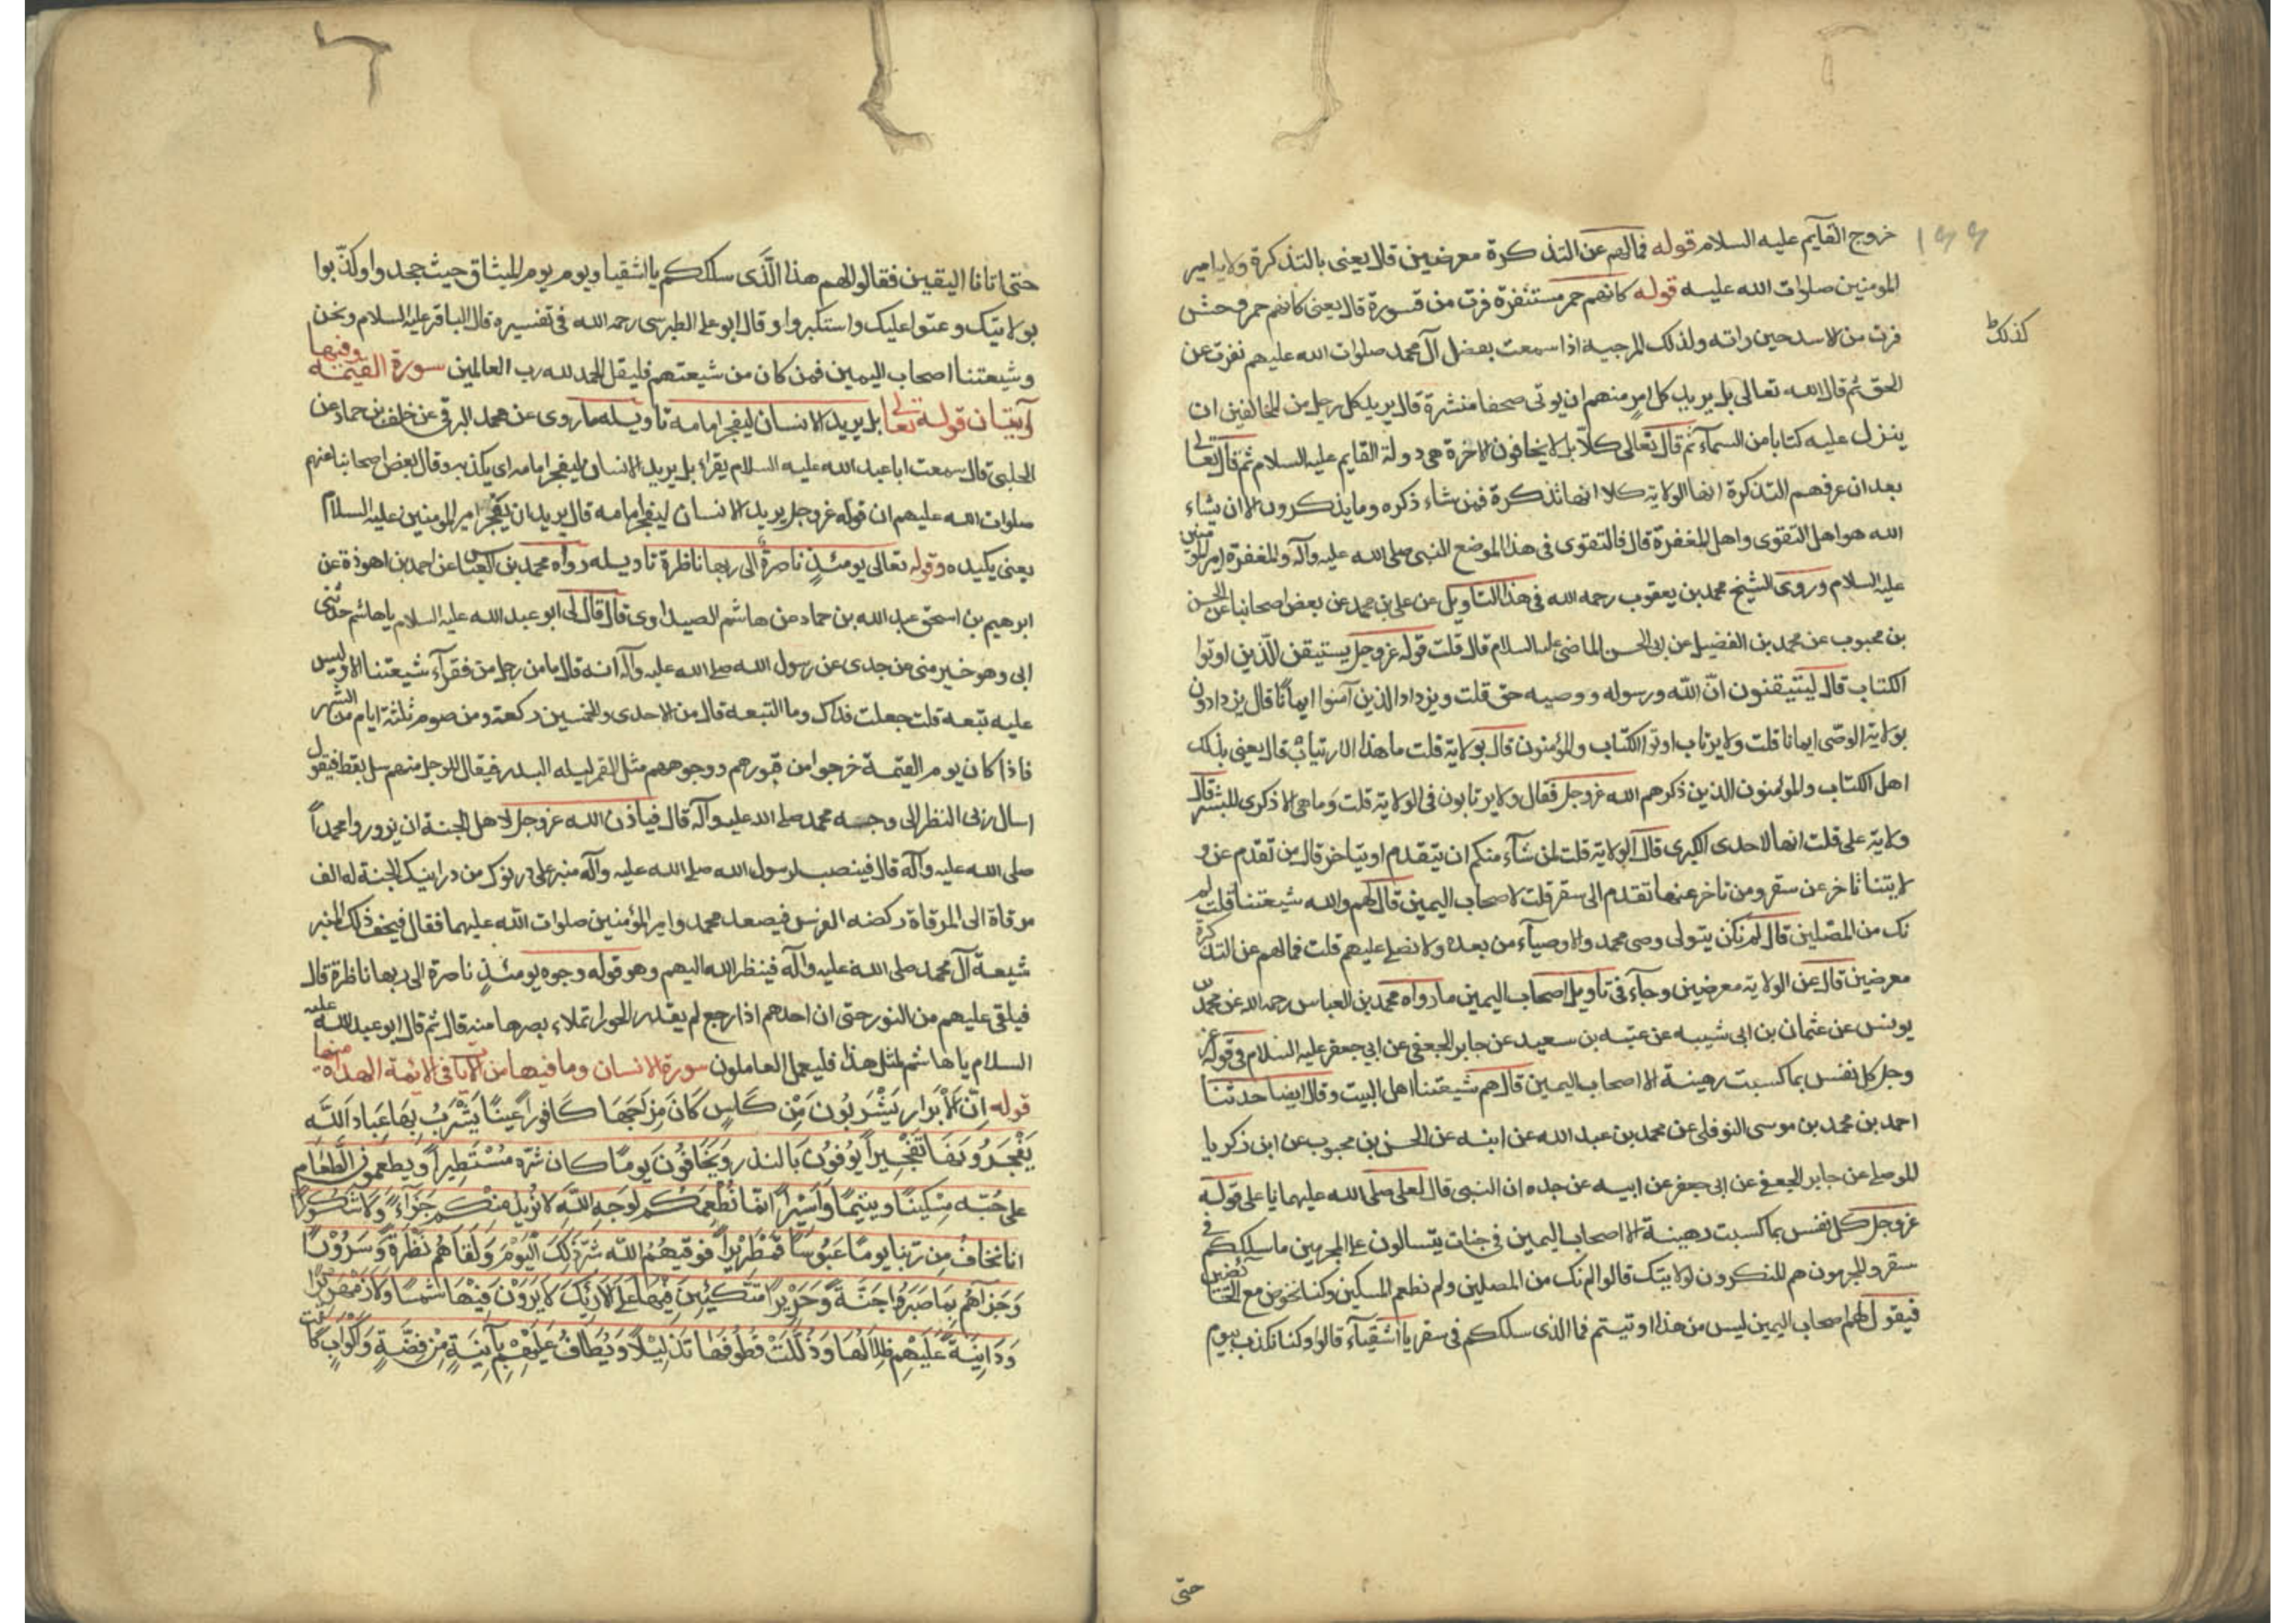 خروج القآيم عليه السلام قوله فمالهم عن التذكرة معرضين قال يعنى بالتذكرة ولاية امير
المومنين صلوات الله عليه قوله كانهم حمر مستنفرة فرت من قسورة قال يعنى كانهم حمر وحش
فرت من الاسد حين راته ولذلك المرجية اذا سمعت بفضل آل محمد صلوات الله عليهم نفرت عن
كذلك
الحق ثم قال الله تعالى بل يريد كل امرٍ منهم ان يوتى صحفا منشرة قال يريد كل رجل من المخالفين ان
ينزل عليه كتابا من السمآء ثم قال تعالى كلّا بل لا يخافون الاخرة هى دولة القايم عليه السلام ثم قال تعالى
بعد ان عرفهم التذكرة انها الولاية كلا انها تذكرة فمن شاء ذكره وما يذكرون الا ان يشاء
الله هو اهل التقوى واهل المغفرة قال فالتقوى فى هذا الموضع النبى صلى الله عليه وآله والمغفرة امير المومنين
عليه السلام وروى الشيخ محمد بن يعقوب رحمه الله فى هذا التاويل عن على بن محمد عن بعض اصحابنا عن الحسن
بن محبوب عن محمد بن الفضيل عن ابى الحسن الماضى عليه السلام قال قلت قوله عزوجل يستيقن الّذين اوتوا
الكتاب قال ليتيقنون انّ الله ورسوله ووصيه حق قلت ويزداد الذين آمنوا ايمانًا قال يزدادون
بولاية الوصّى ايمانا قلت ولا يرتاب اوتوا الكتاب والمؤمنون قال بولاية قلت ما هذا الارتياب قال يعنى بذلك
اهل الكتاب والمؤمنون الذين ذكرهم الله عزوجل فقال ولا يرتابون فى الولاية قلت وما هى الا ذكرى للبشر قال
ولاية على قلت انها لاحدى الكبرى قال الولاية قلت لمن شآء منكم ان يتقدم او يتاخر قال من تقدم عن و
لايتنا تاخر عن سقر ومن تاخر عنها تقدم الى سقر قلت لا صحاب اليمين قال لهم والله شيعتنا قلت لم
نك من المصّلين قال لم نكن يتولى وصى محمد والاوصيآء من بعده ولا نصلى عليهم قلت فمالهم عن التذكرة
معرضين قال عن الولاية معرضين وجآء فى تاويل اصحاب اليمين ما رواه محمد بن العباس رحمه الله عن محمد بن
يونس عن عثمان بن ابى شيبه عن عتبه بن سعيد عن جابر الجعفى عن ابى جعفر عليه السلام فى قوله عز
وجل كل نفس بما كسبت رهينة الا اصحاب اليمين قال هم شيعتنا اهل البيت وقال ايضا حدثنا
احمد بن محمد بن موسى النوفلى عن محمد بن عبد الله عن ابنه عن الحسن بن محبوب عن ابن ذكريا
الموصلى عن جابر الجعفى عن ابى جعفر عن ابيه عن جده ان النبى قال لعلى صلى الله عليهما يا على قوله
عزوجل كل نفس بما كسبت رهينة الا اصحاب اليمين فى جنات يتسالون على المجرمين ما سلككم فى
سقر والمجرمون هم المنكرون لولايتك قالوا لم نك من المصلين ولم نطعم المسكين وكنا نخوض مع الخائضين
فيقول لهم اصحاب اليمين ليس من هذا اوتيتم فما الذى سلككم فى سقر يا اشقيآء قالوا وكنا نكذب بيوم
حتى
حتى اتانا اليقين فقالوا لهم هذا الّذى سلككم يا اشقيا ويوم يوم الميثاق حيث جحدوا وكذّبوا
بولايتك وعتوا عليك واستكبروا وقال ابو على الطبرسى رحمه الله فى تفسيره قال الباقر عليه السلام ونحن
وشيعتنا اصحاب اليمين فمن كان من شيعتهم فليقل الحمد لله رب العالمين سورة القيٰمة وفيها
آيتان قوله تعالى بل يريد الانسان ليفجر امامه تاويله ما روى عن محمد البرقى عن خلف بن حماد عن
الحلبى قال سمعت ابا عبد الله عليه السلام يقراء بل يريد الانسان ليفجر امامه اى يكذبه وقال بعض اصحابنا عنهم
صلوات الله عليهم ان قوله عزوجل يريد الانسان ليفجر امامه قال يريد ان يفجر امير المومنين عليه السلام
يعنى يكيده وقوله تعالى يومئذٍ ناصرة الى ربها ناظرة تاويله رواه محمد بن العباس عن احمد بن اهوذة عن
ابرهيم بن اسحق عبد الله بن حماد عن هاشم الصيداوى قال قال لى ابو عبد الله عليه السلام يا هاشم حدثنى
ابى وهو خير منى عن جدى عن رسول الله صلى الله عليه وآله انه قال ما من رجل من فقرآء شيعتنا الا وليس
عليه تبعه قلت جعلت فداك وما التبعه قال من الاحدى والخمسين ركعة ومن صوم ثلثة ايام من الشهر
فاذا كان يوم القيٰمة خرجوا من قبورهم ووجوههم مثل القمر ليله البدر فيقال للرجل منهم سل يعط فيقول
اسال ربى النظر الى وجه محمد صلى الله عليه وآله قال فياذن الله عزوجل لاهل الجنة ان يزوروا محمداً
صلى الله عليه وآله قال فينصب لرسول الله صلى الله عليه وآله منبر على درنوك من درانيك الجنة له الف
مرقاة الى المرقاة ركضه الفرس فيصعد محمد وامير المؤمنين صلوات الله عليهما فقال فيحف ذلك المنبر
شيعة آل محمد صلى الله عليه وآله فينظر الله اليهم وهو قوله وجوه يومئذٍ ناصرة الى ربها ناظرة قال
فيلقى عليهم من النور حتى ان احدهم اذا رجع لم يقدر الحورا تملاء بصرها منه قال ثم قال ابو عبد الله عليه
السلام يا هاشم لمثل هذا فليعمل العاملون سورة الانسان وما فيها من الآيات فى الائمة الهداه منها
قوله اِنّ الْاَبْرار يَشْرَبُونَ مِنْ كَاسٍ كَانَ مِزَاجُهَا كَافوراً عَينًا يَشْرَبُ بِهَا عِبَادَ اللَّه
يَفْجُرُونهَا تَفْجِيراً يُوفُونَ بَالنذر وَيَخَافُونَ يومًا كان شرّه مُسْتَطِيراً ويطعمون الطَّعَام
على حُبّه مِسْكينًا ويتيمًا وَاَسيْراً انمّا نُطعِمكُم لوَجهِ اللَّهِ لا نُريد منكم جَزَآءً وَلا شكُورًا
انا نخافُ مِن رَّبنا يومًا عَبُوسًا قمْطَرِيْراً فوقيهُمُ اللَّه شرّ ذٰلِكَ الْيَوْمَ وَلَقاهُم نَظْرَةً وَسرُوْرًا
وَجَزاهُم بِمَا صَبَروُا جَنّةً وَّحَرِيْراً متَّكئينَ فِيْهَا عَلَى الاَرئِكَ لا يَرَوْنَ فيْهَا شَمْسًا وَلا زَمْهَرِيْراً
وَدَانِيَةً عَلَيْهِم ظِلَالُهَا وَذُلّلَتْ قُطُوفُهَا تَذْلِيْلاً وَيُطَافُ عَلَيْهِمْ بِآنِيَةٍ مِنْ فِضَّةٍ وَاَكْوَابٍ كانت